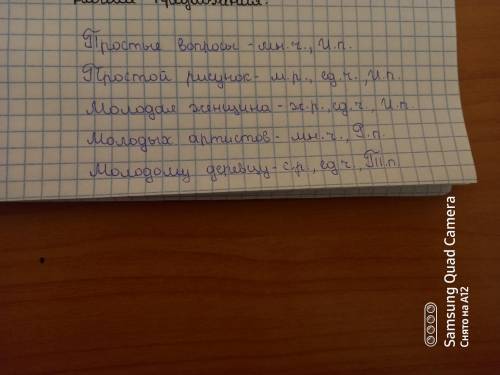 Простые вопросы - мн.ч., И.п.
Простой рисунок - м.р., ед.ч., И.п.
Молодая женщина - ж.р., ед.ч., И.п.
Молодых артистов - мн.ч., Р.п.
Молодому деревцу - с.р., ед.ч., П.п.
Samsung Quad Camera
Снято на A12